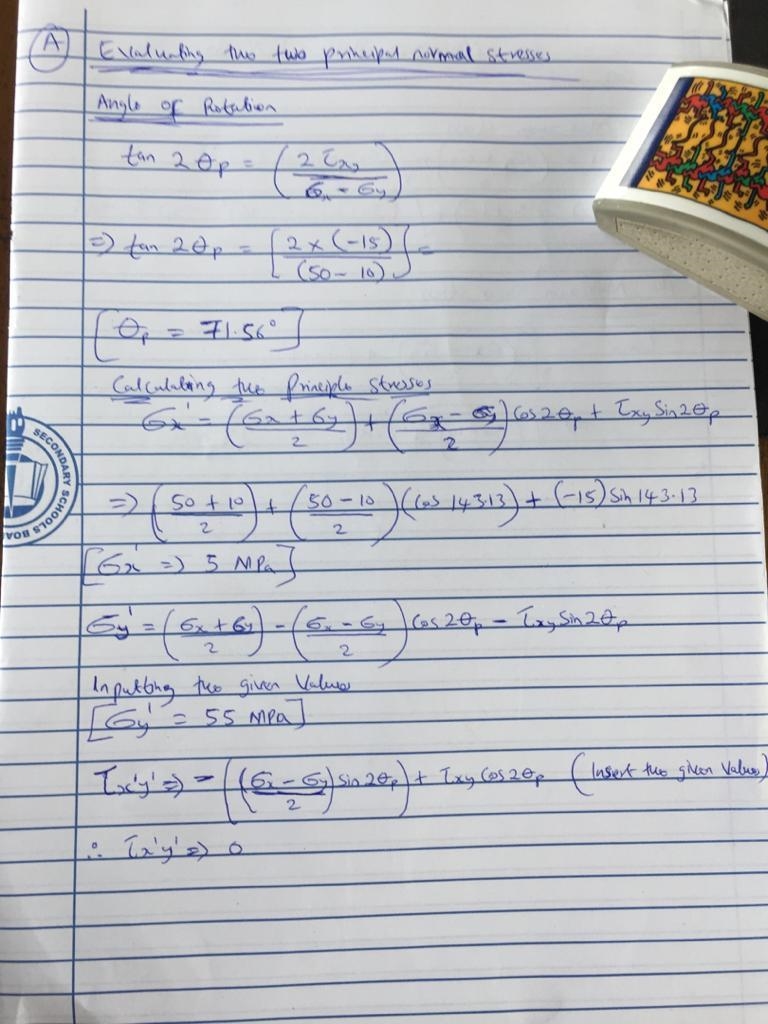 A
Evaluating the two principal normal stresses
Angle of Rotation
tan 2θp = (2τxy / σx - σy)
=> tan 2θp = [2 x (-15) / (50 - 10)] =
[θp = 71.56°]
Calculating the Principle stresses
σx' = (σx + σy / 2) + (σx - σy / 2) Cos2θp + τxy Sin2θp
=> (50 + 10 / 2) + (50 - 10 / 2) (Cos 143.13) + (-15) Sin 143.13
[σx' => 5 MPa]
σy' = (σx + σy / 2) - (σx - σy / 2) Cos2θp - τxy Sin2θp
Inputting the given Values
[σy' = 55 MPa]
τx'y' => - ((σx - σy / 2) Sin2θp) + τxy Cos2θp (Insert the given Values)
∴ τx'y' => 0
SECONDARY SCHOOLS BOA